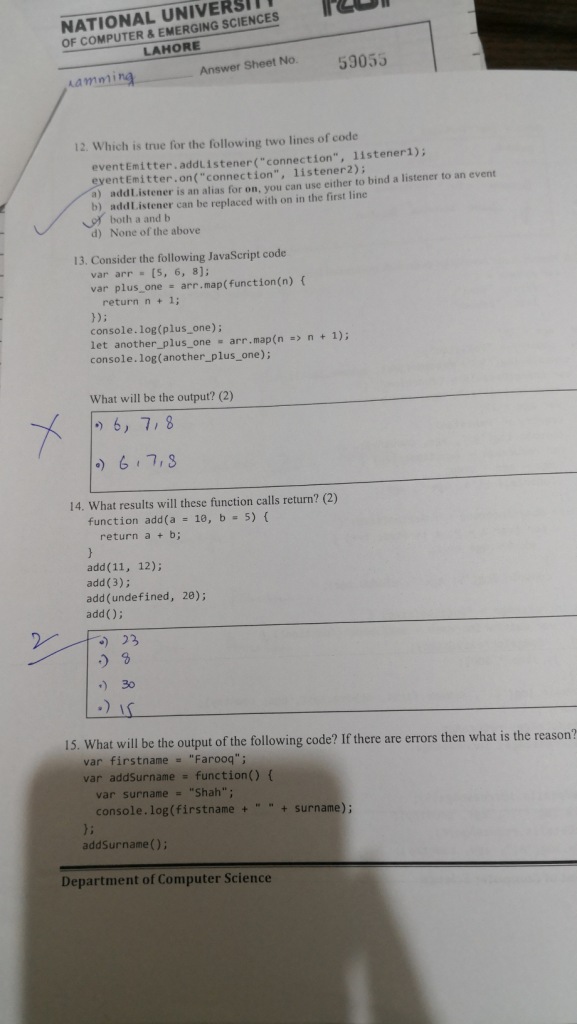 NATIONAL UNIVERSITY
OF COMPUTER & EMERGING SCIENCES
LAHORE
Answer Sheet No. 59055
12. Which is true for the following two lines of code
eventEmitter.addListener("connection", listener1);
eventEmitter.on("connection", listener2);
a) addListener is an alias for on, you can use either to bind a listener to an event
b) addListener can be replaced with on in the first line
c) both a and b
d) None of the above
13. Consider the following JavaScript code
var arr = [5, 6, 8];
var plus_one = arr.map(function(n) {
return n + 1;
});
console.log(plus_one);
let another_plus_one = arr.map(n => n + 1);
console.log(another_plus_one);
What will be the output? (2)
6, 7, 8
6, 7, 8
14. What results will these function calls return? (2)
function add(a = 10, b = 5) {
return a + b;
}
add(11, 12);
add(3);
add(undefined, 20);
add();
2
23
8
30
15
15. What will be the output of the following code? If there are errors then what is the reason?
var firstname = "Farooq";
var addSurname = function() {
var surname = "Shah";
console.log(firstname + " " + surname);
};
addSurname();
Department of Computer Science